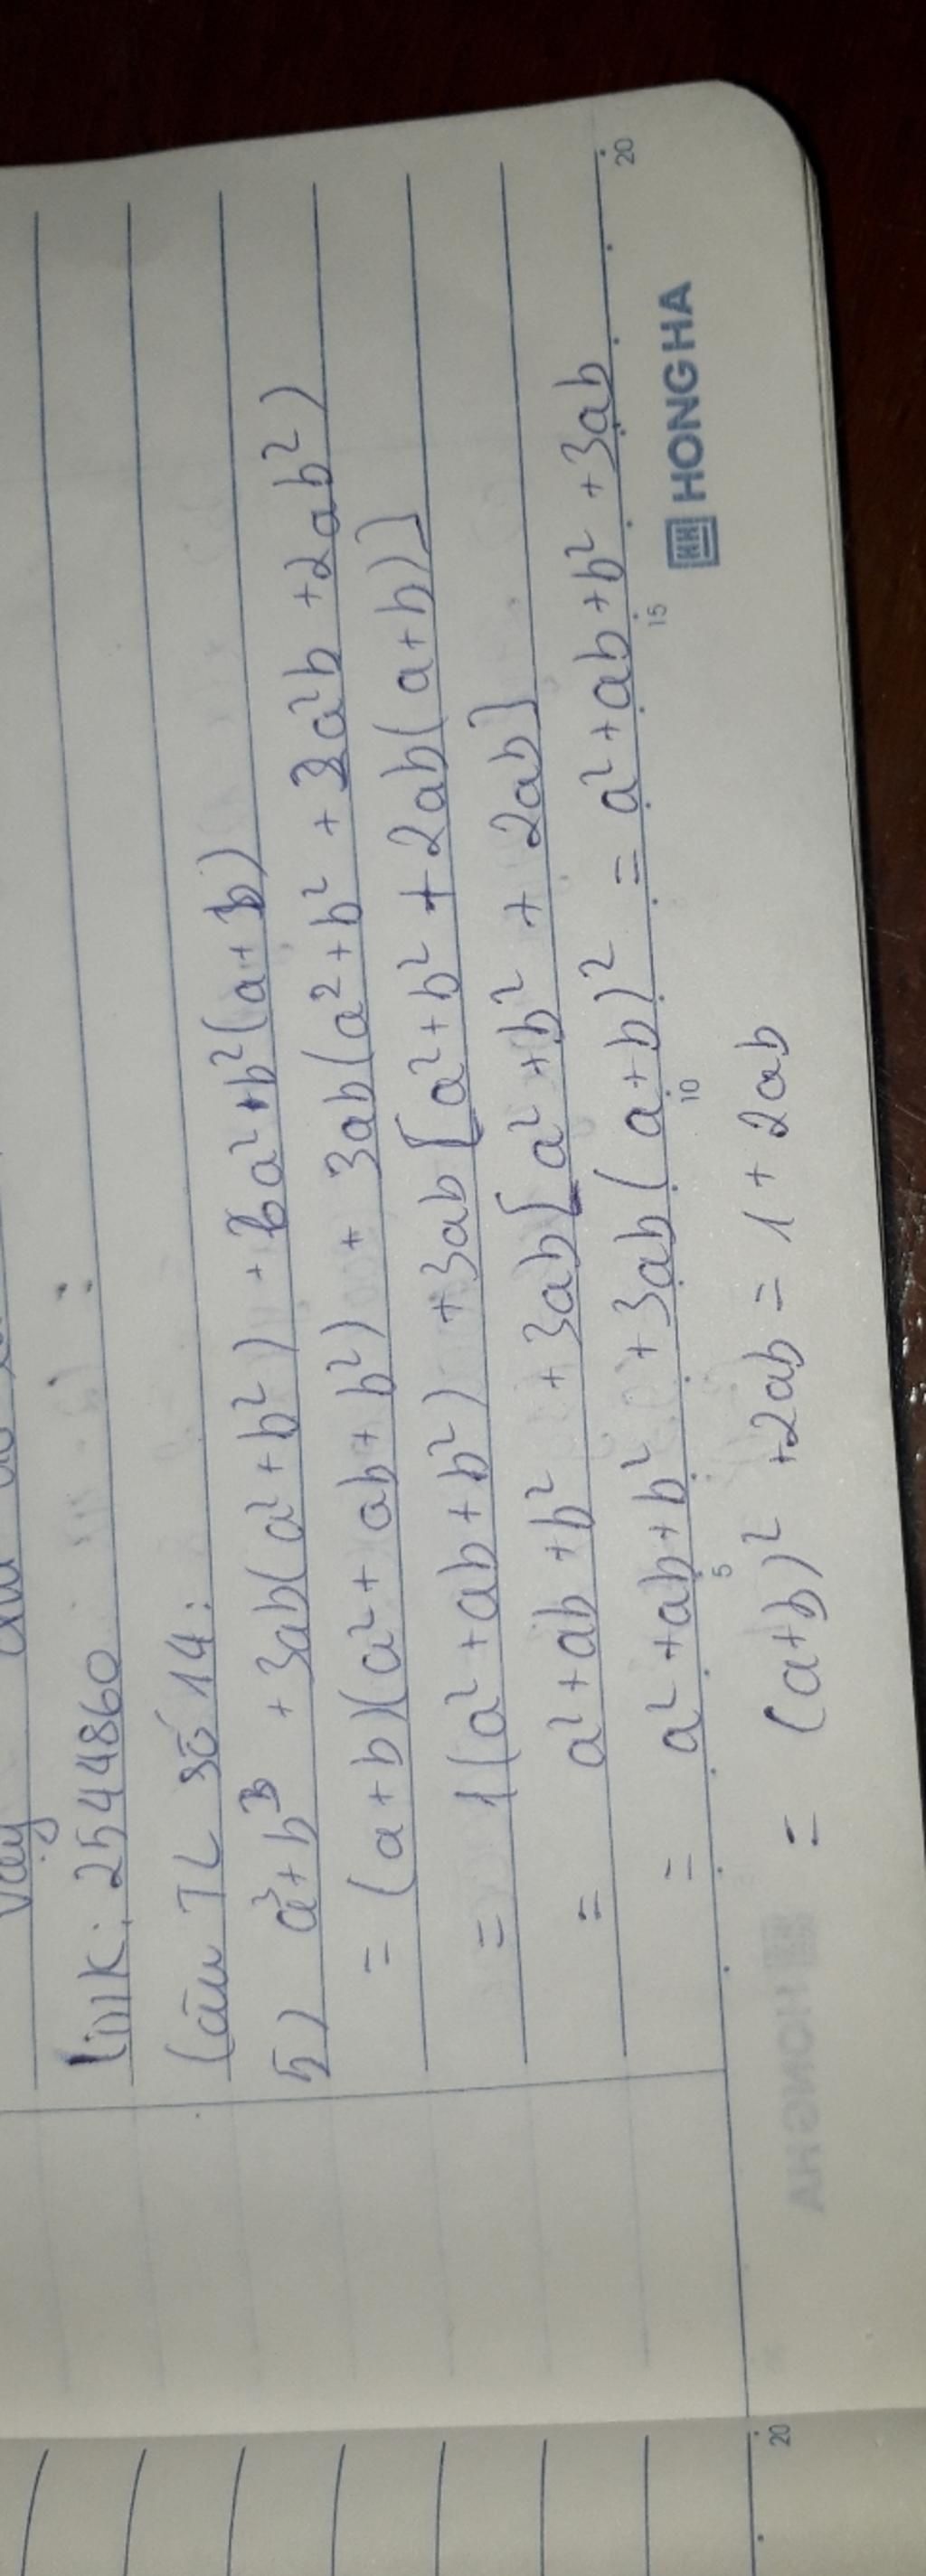 vậy
link: 2544860
Câu TL số 14:
5) a³+b³ + 3ab(a²+b²) + 6a²+b²(a+b)
= (a+b)(a²+ab+b²) + 3ab(a²+b² + 3a²b +2ab²)
= 1(a²+ab+b²) +3ab[a²+b² +2ab(a+b)]
= a²+ab+b² + 3ab[a²+b² + 2ab]
= a²+ab+b² +3ab(a+b)² = a²+ab+b²+3ab
= (a+b)² +2ab = 1+2ab
5
10
15
20
HH HONG HA
20